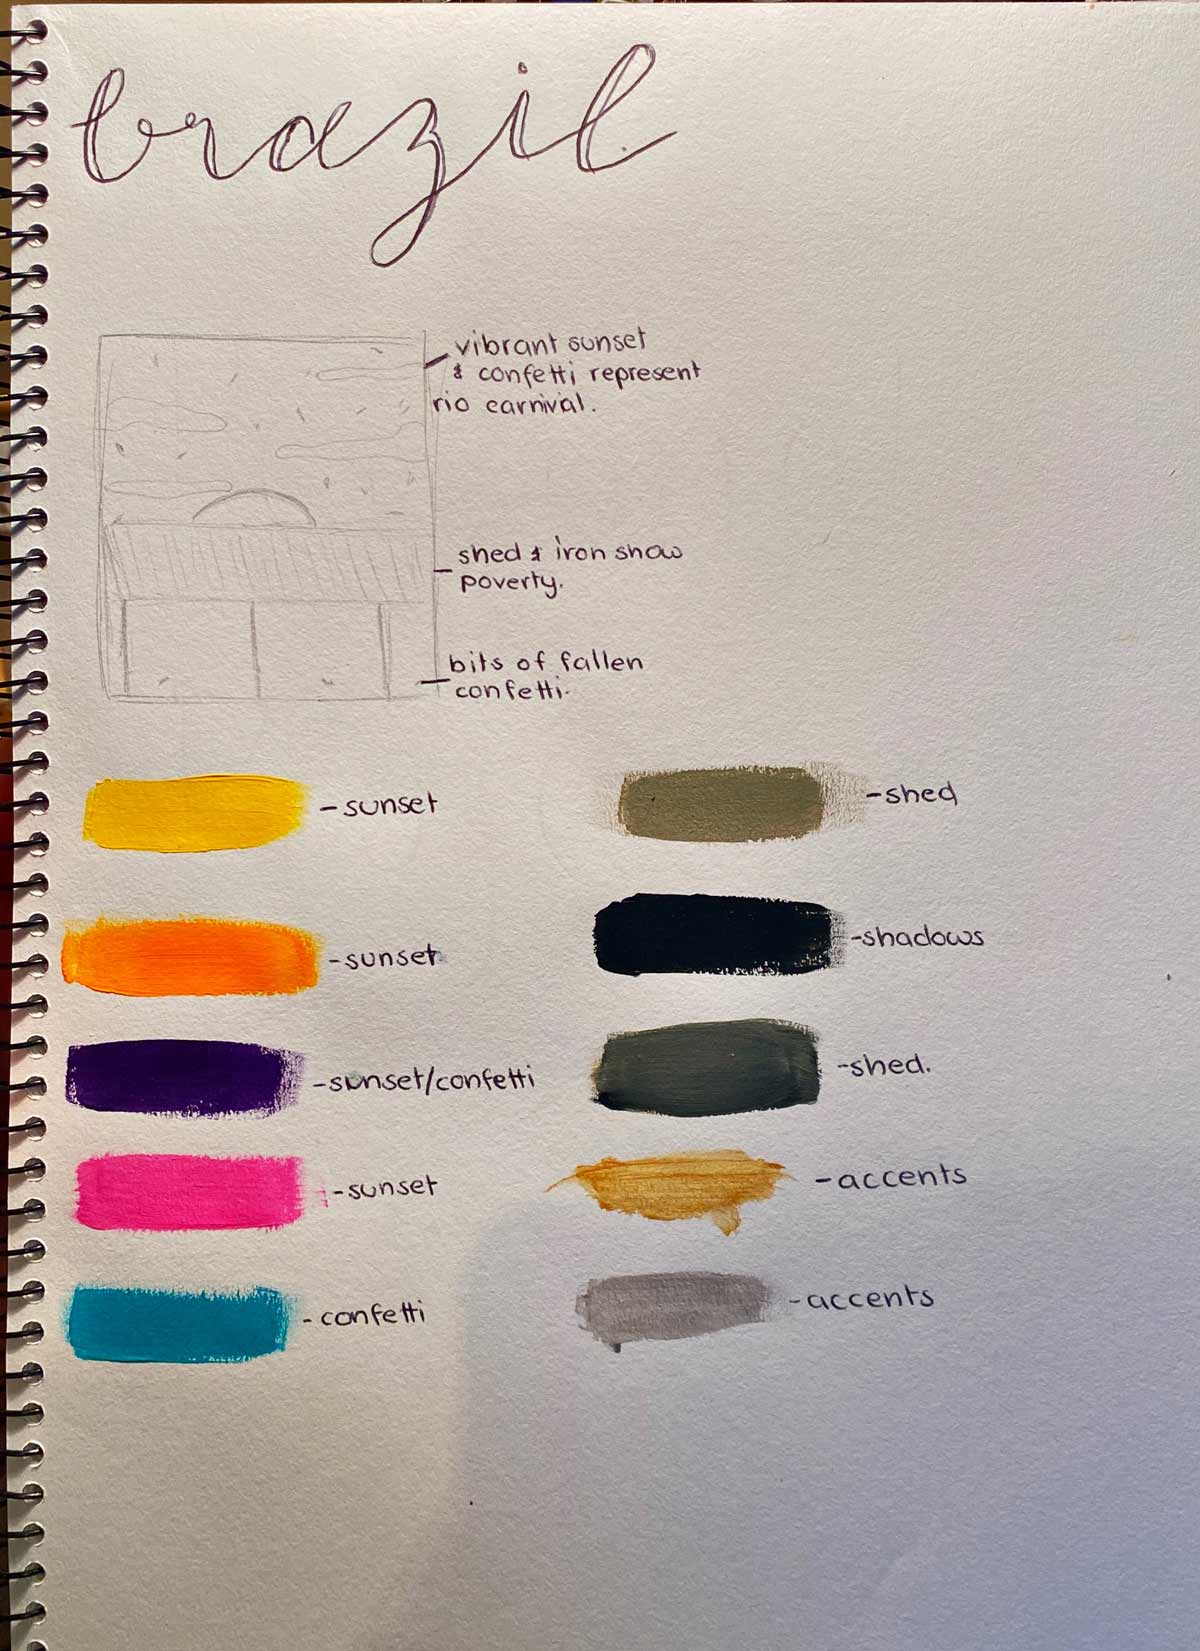 brazil
vibrant sunset
& confetti represent
rio carnival.
shed & iron show
poverty.
bits of fallen
confetti.
-sunset
-shed
-sunset
-shadows
-sunset/confetti
-shed.
-sunset
-accents
-confetti
-accents